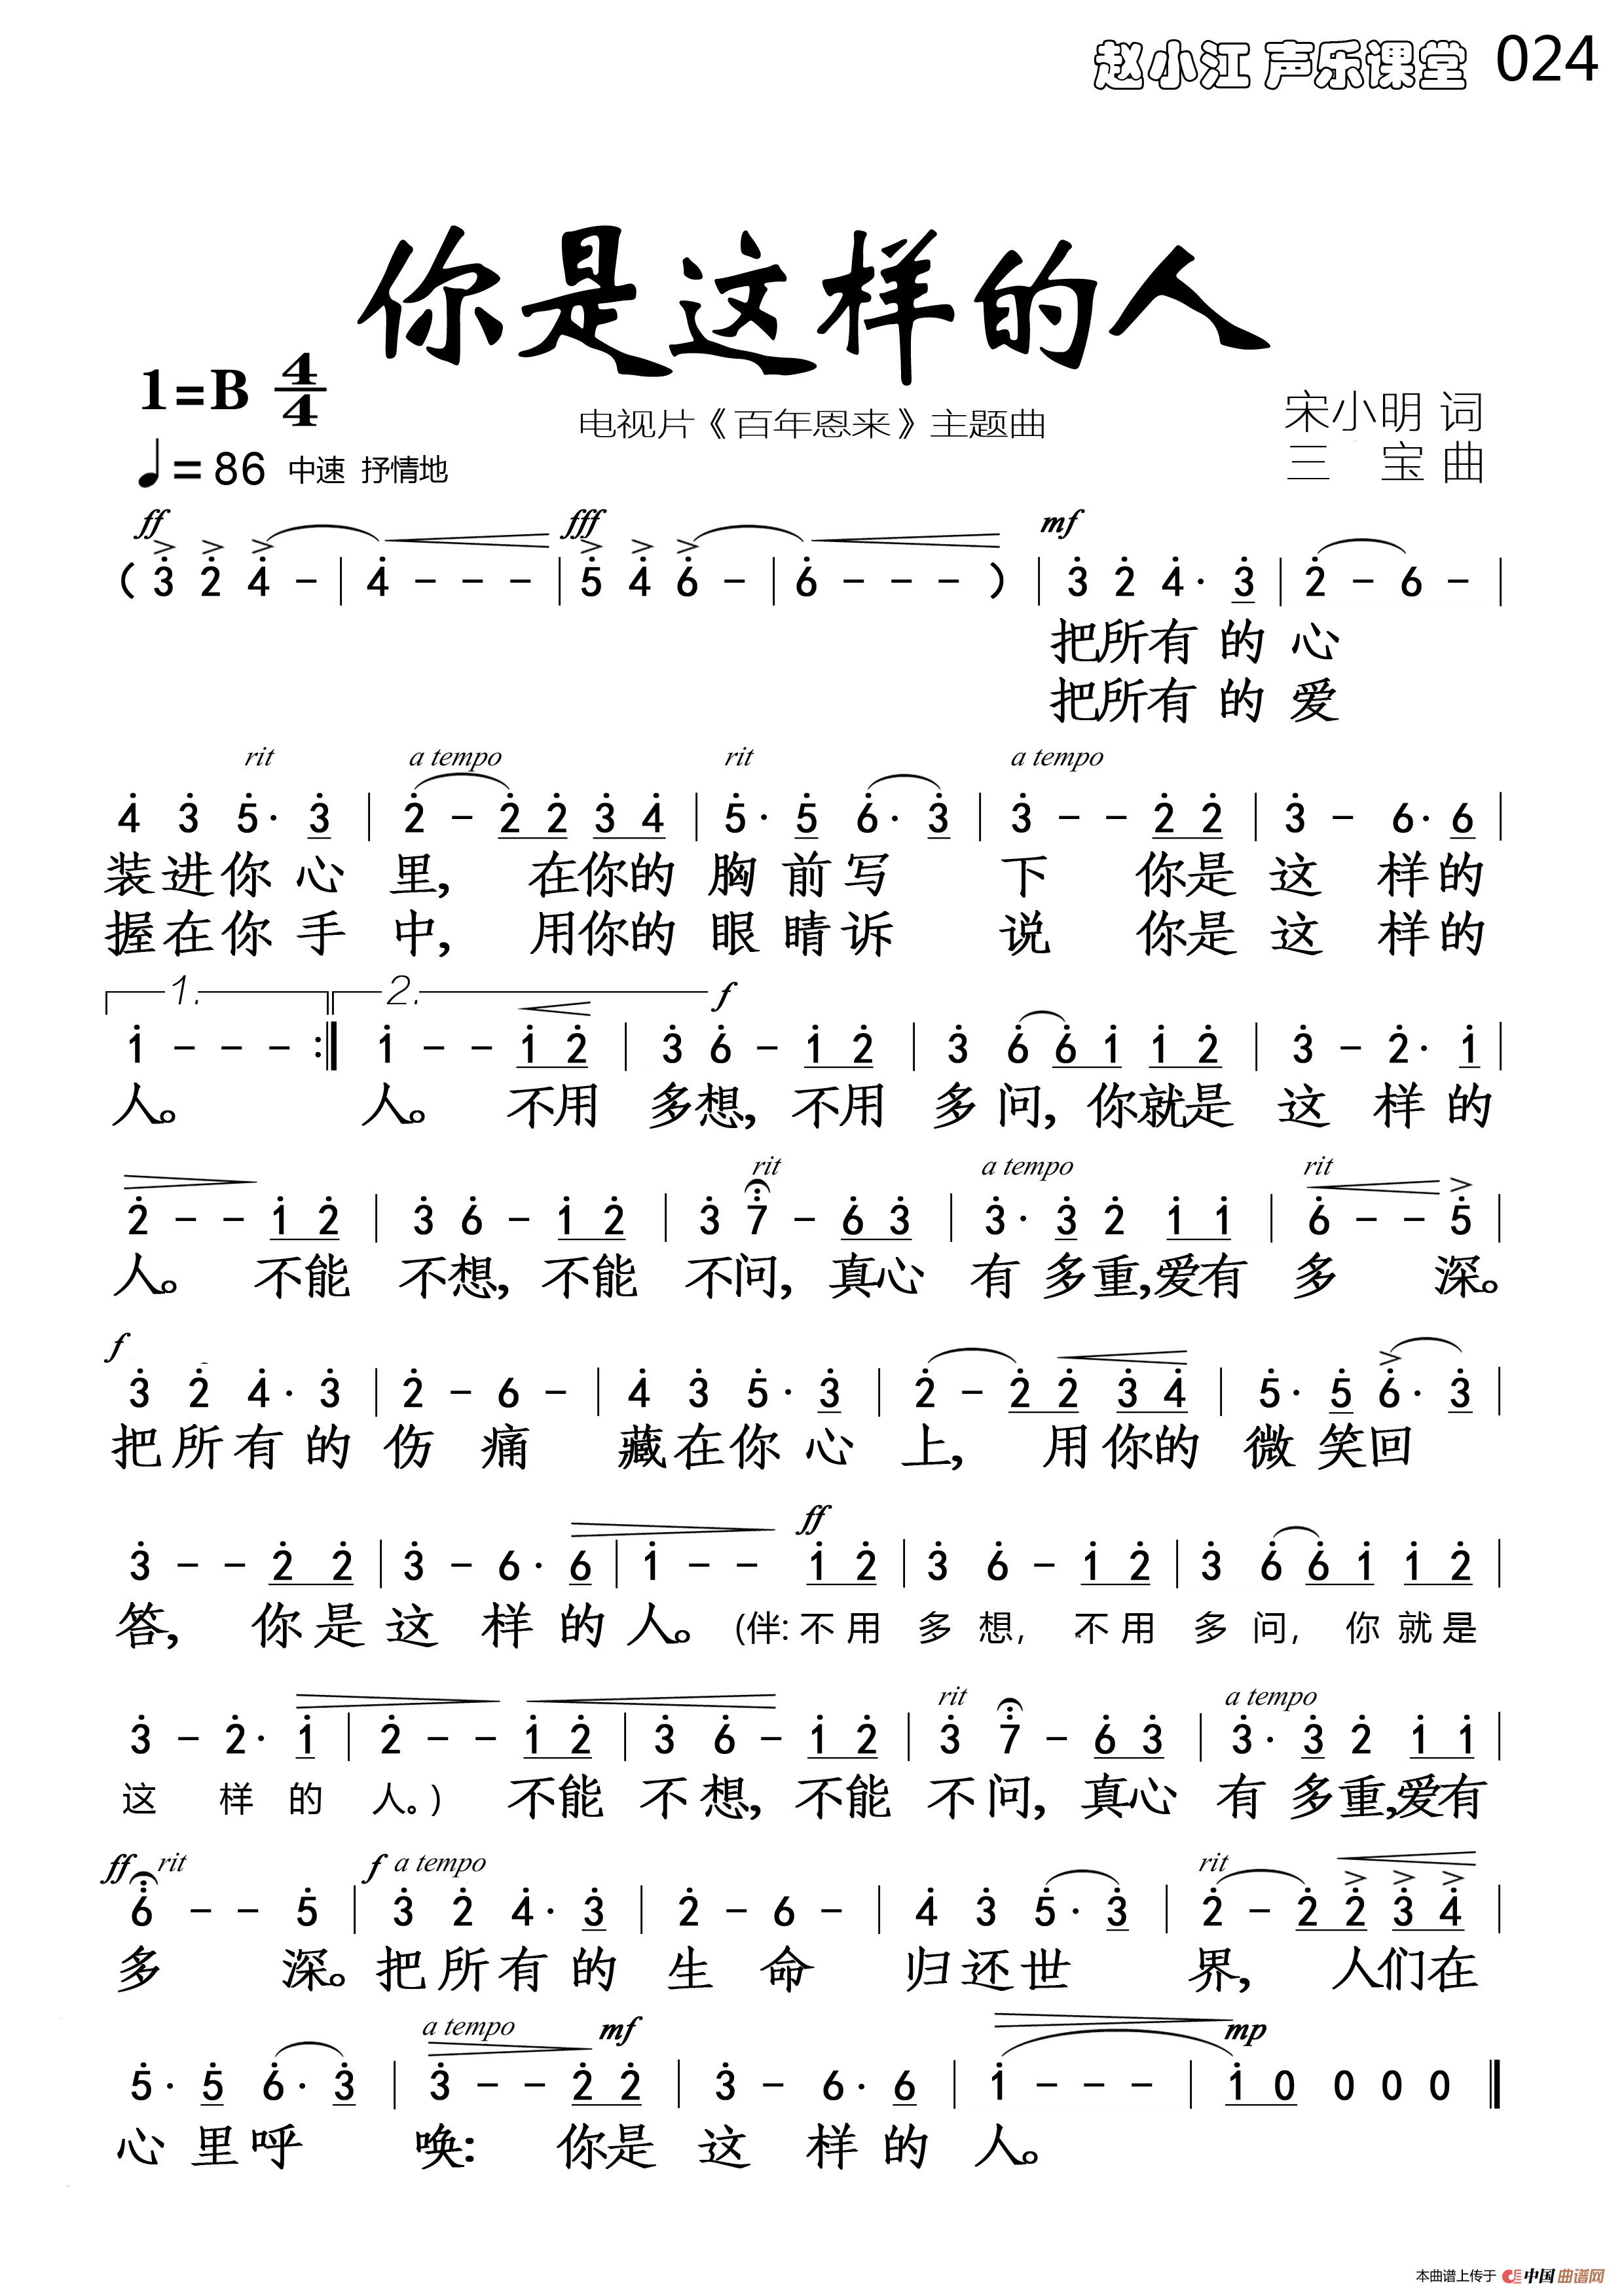 赵小江 声乐课堂 024
你是这样的人
1=B 4/4
电视片《百年恩来》主题曲
宋小明 词
♩= 86 中速 抒情地
三 宝 曲
ff fff mf
( 3 2 4 - | 4 - - - | 5 4 6 - | 6 - - - ) | 3 2 4· 3 | 2 - 6 - |
把所有 的 心
把所有 的 爱
rit a tempo rit a tempo
4 3 5· 3 | 2 - 2 2 3 4 | 5· 5 6· 3 | 3 - - 2 2 | 3 - 6· 6 |
装进你 心 里, 在你的 胸 前 写 下 你是 这 样的
握在你 手 中, 用你的 眼 睛 诉 说 你是 这 样的
1. 2. f
1 - - - :‖ 1 - - 1 2 | 3 6 - 1 2 | 3 6 6 1 1 2 | 3 - 2· 1 |
人。 人。 不用 多想, 不用 多 问, 你就是 这 样 的
rit a tempo rit
2 - - 1 2 | 3 6 - 1 2 | 3 7 - 6 3 | 3· 3 2 1 1 | 6 - - 5 |
人。 不能 不想, 不能 不问, 真心 有 多重,爱有 多 深。
f
3 2 4· 3 | 2 - 6 - | 4 3 5· 3 | 2 - 2 2 3 4 | 5· 5 6· 3 |
把所有 的 伤 痛 藏在你 心 上, 用你的 微 笑回
ff
3 - - 2 2 | 3 - 6· 6 | 1 - - 1 2 | 3 6 - 1 2 | 3 6 6 1 1 2 |
答, 你是 这 样 的 人。 (伴: 不用 多 想, 不用 多 问, 你就是
rit a tempo
3 - 2· 1 | 2 - - 1 2 | 3 6 - 1 2 | 3 7 - 6 3 | 3· 3 2 1 1 |
这 样 的 人。) 不能 不想, 不能 不问, 真心 有 多重,爱有
ff rit f a tempo rit
6 - - 5 | 3 2 4· 3 | 2 - 6 - | 4 3 5· 3 | 2 - 2 2 3 4 |
多 深。 把所有 的 生 命 归还世 界, 人们在
a tempo mf mp
5· 5 6· 3 | 3 - - 2 2 | 3 - 6· 6 | 1 - - - | 1 0 0 0 0 ‖
心里呼 唤: 你是 这 样 的 人。
本曲谱上传于 中国曲谱网